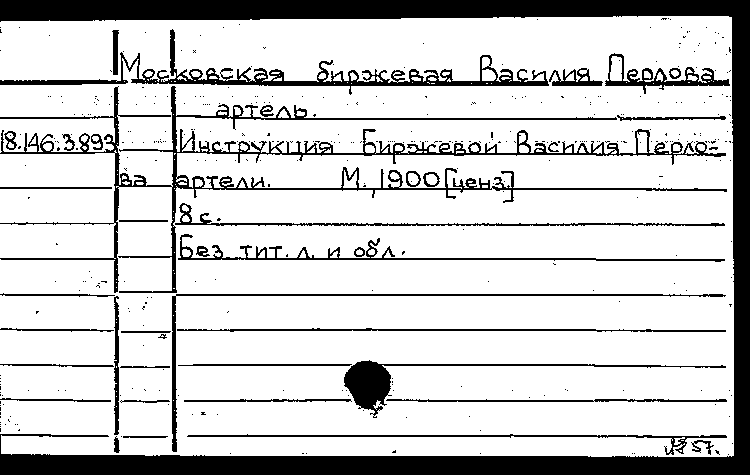 Московская биржевая Василия Перлова
артель.
18.146.3.893 Инструкция Биржевой Василия Перло-
ва артели. М., 1900 [ценз.]
8 с.
Без тит. л. и обл.
57.